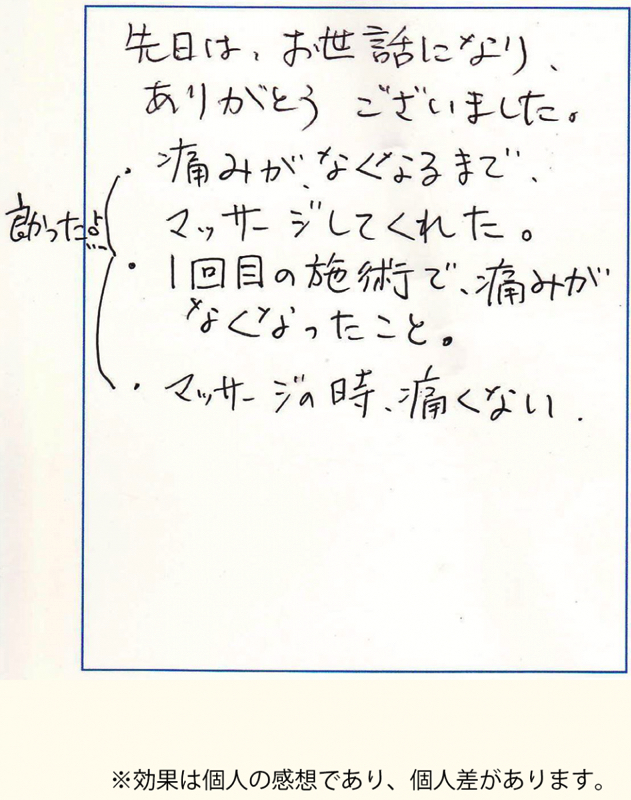 先日は、お世話になり、
ありがとう ございました。
・ 痛みが、なくなるまで、
マッサージしてくれた。
良かったよ
・ 1回目の施術で、痛みが
なくなったこと。
・ マッサージの時、痛くない.
※効果は個人の感想であり、個人差があります。